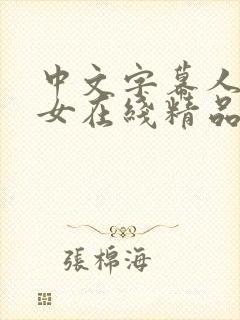 中文字幕人
女在綫精品
張棉海